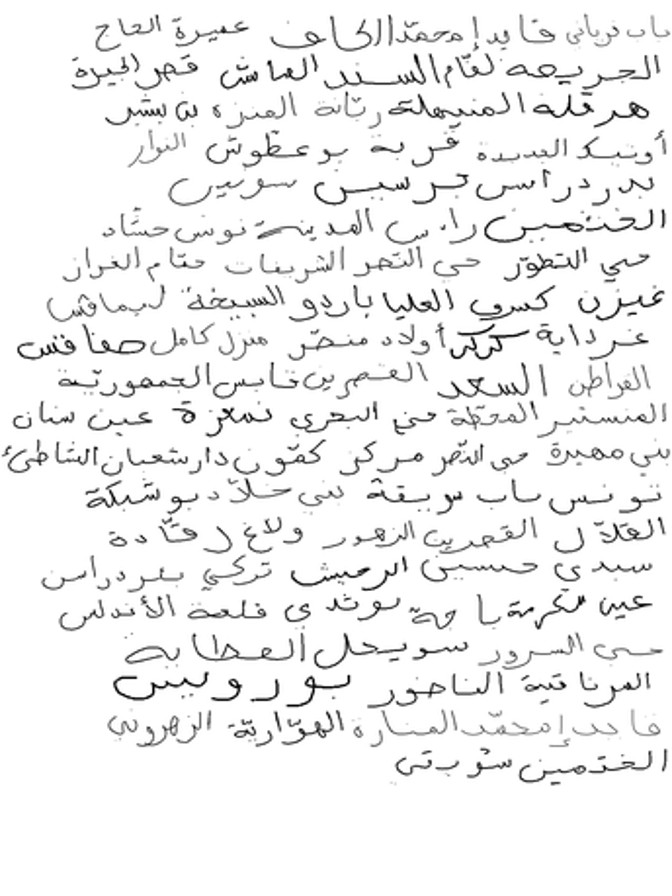 باب فرياني قايد إمحمّد الكاف عميرة الحاج
الجريصة لقّام السند الماش قصر الجيرة
هرقلة المنيهلة رتانة المنزه بن بشير
أونيك الجديدة قرية بوعطوش النوار
بئر دراسن جرسين سونين
الختمين راس المدينة تونس حشّاد
حي التطوّر حي النصر الشريفات حمّام الغزاز
غيزن كسرى العليا باردو السبيخة
غرداية كركر أولاد منصر منزل كامل صفاقس
القراطن السعد القصرين قابس الجمهوريّة
المنستير المحطّة حي البحري تمغزة عين سنان
بني مهيرة حي النصر مركز كمّون دار شعبان الشاطئ
تونس باب سويقة بني خلاّد بوشبكة
القلاّل القصرين الزهور ولاغ رقّادة
سيدي حسين الرحيش تركي بئر دراسن
عين مكرمة باجة بوثدي قلعة الأندلس
حي السرور سويحل الحطابة
المرناقية الناضور بوروبين
قايد إمحمّد المنارة الهوّاريّة الزهروني
الختمين شورتي